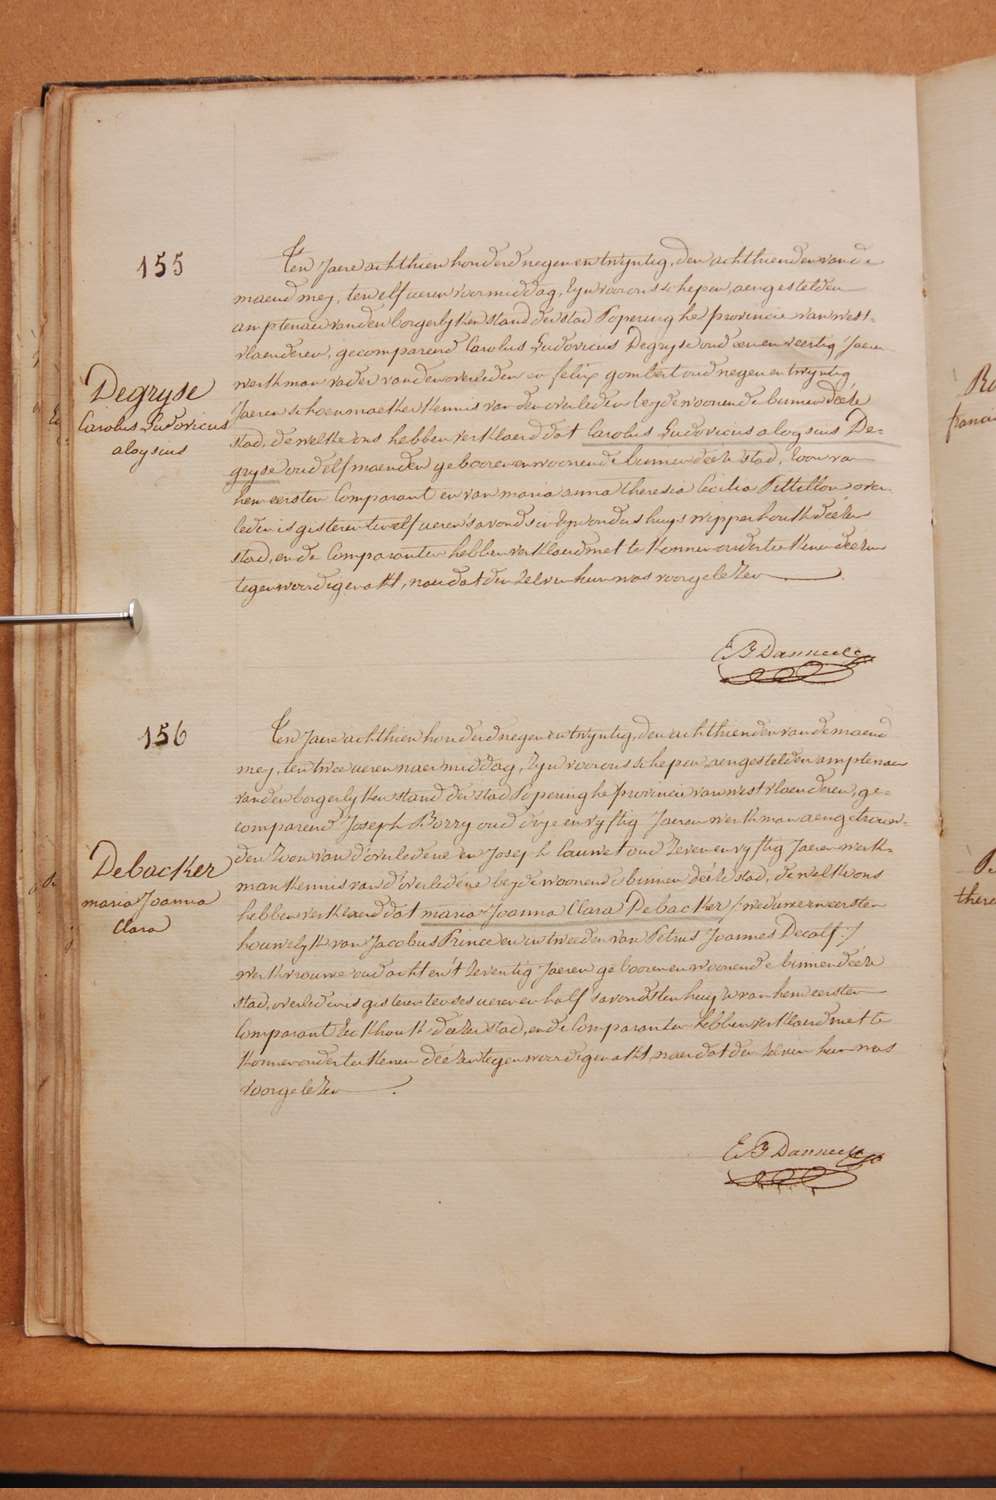 155
Degryse
Carolus Ludovicus
aloysius
Ten Jaere achthien honderd negen en twyntig, den achthienden van de
maend mey, ten elf ueren voormiddag, zyn voor ons schepen, aengestelden
amptenaer van den borgerlyken stand der stad Poperinghe provincie van west-
vlaenderen, gecompareerd Carolus Ludovicus Degryse oud een en veertig Jaeren
werkman vader van den overleden en felix gombert oud negen en twyntig
Jaeren schoenmaeker kennis van den overleden beyde woonende binnen deéze
stad, de welke ons hebben verklaerd dat Carolus Ludovicus aloysius De-
gryse oud elf maenden gebooren en woonende binnen deéze stad, zoon van
hem eersten Comparant en van maria anna theresia Cecilia Pittillon over-
leden is gisteren ten elf ueren 's avonds in zyn woonders huys wipperhoek deézer
stad, en de Comparanten hebben verklaerd met te konnen onderteekenen deézen
tegenwoordigen akt, naer dat den zelven hun was voorgelezen.
E B Danneel
156
Debacker
maria Joanna
Clara
Ten Jaere achthien honderd negen en twyntig, den achthienden van de maend
mey, ten twee ueren naermiddag, zyn voor ons schepen aengestelden amptenaer
van den borgerlyken stand der stad Poperinghe provincie van westvlaenderen, ge-
compareerd Joseph Borry oud drye en vyftig Jaeren werkman aengetrouw-
den zoon van d'overledene en Joseph Cauwet oud zeven en vyftig Jaeren werk-
man kennis van d'overledene beyde woonende binnen deéze stad, de welke ons
hebben verklaerd dat maria Joanna Clara Debacker /weduwe in eersten
houwelyk van Jacobus Prince en in tweeden van Petrus Joannes Decalf /
werkvrouwe oud acht en 't zeventig Jaeren gebooren en woonende binnen deéze
stad, overleden is gisteren ten ses ueren en half 's avonds ten huyze van hem eersten
Comparant Eekhoek deézer stad, en de Comparanten hebben verklaerd met te
konnen onderteekenen deézen tegenwoordigen akt, naer dat den zelven hun was
voorgelezen.
E B Danneel